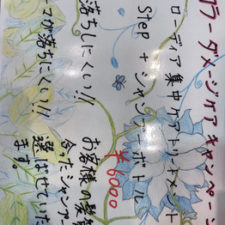 カラーダメージケア キャンペーン
ローディア集中ケアトリートメント
Step + シャンプー ボト
¥6000
落ちしにくい!!
マが落ちにくい!!
お客様の髪質
合ったシャンプー
選ばせていた
ます。